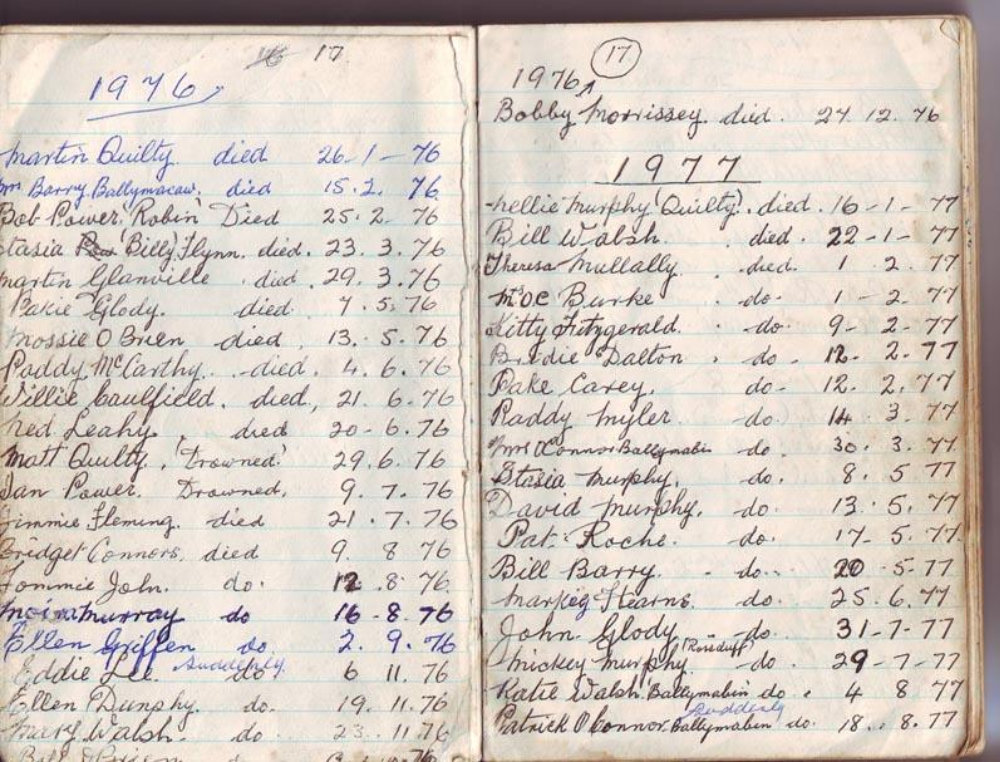 17
1976
Martin Quilty died 26-1-76
Mrs Barry. Ballymacaw. died 15.2. 76
Bob Power, 'Robin' Died 25.2-76
Stasia 'Billy' Flynn. died. 23.3.76
Martin Glanville died. 29.3.76
Pakie Glody. died. 7.5.76
Mossie O Brien died 13.5.76
Paddy McCarthy. died. 4.6.76
Willie Caulfield. died, 21.6.76
Ned Leahy, died 20-6.76
Matt Quilty, 'Drowned' 29.6.76
Dan Power. Drowned. 9.7.76
Jimmie Fleming. died 21.7.76
Bridget Connors. died 9. 8 76
Tommie John. do. 12.8.76
Moira Murray do 16-8.76
Ellen Griffen do. 2.9.76
Eddie Lee Suddenly do. 6 11.76
Ellen Dunphy. do. 19.11.76
Mary Walsh. do 23.11.76
76
17
1976
Bobby Morrissey. died. 27 12.76
1977
Nellie Murphy (Quilty). died. 16-1-77
Bill Walsh. died. 22-1-77
Theresa Mullally. died. 1 2.77
Burke do. 1-2.77
Kitty Fitzgerald. do. 9-2-77
Bridie Dalton. do. 12. 2.77
Carey. do- 12. 2.77
Paddy Myler do. 14. 3. 77
Mrs O'Connor Ballymabin do. 30. 3. 77
Stasia Murphy. do. 8. 5 77
David Murphy. do. 13.5.77
Pat. Roche. do. 17-5.77.
Bill Barry. do.. 20.5-77
Stearns. do. 25.6.77
John. Glody. do. 31-7-77
Mickey Murphy (Rosduff) do. 29-7-77
Katie Walsh. Ballymabin do. 4 8 77
Patrick O'Connor. Ballymabin Suddenly do. 18.. 8.77